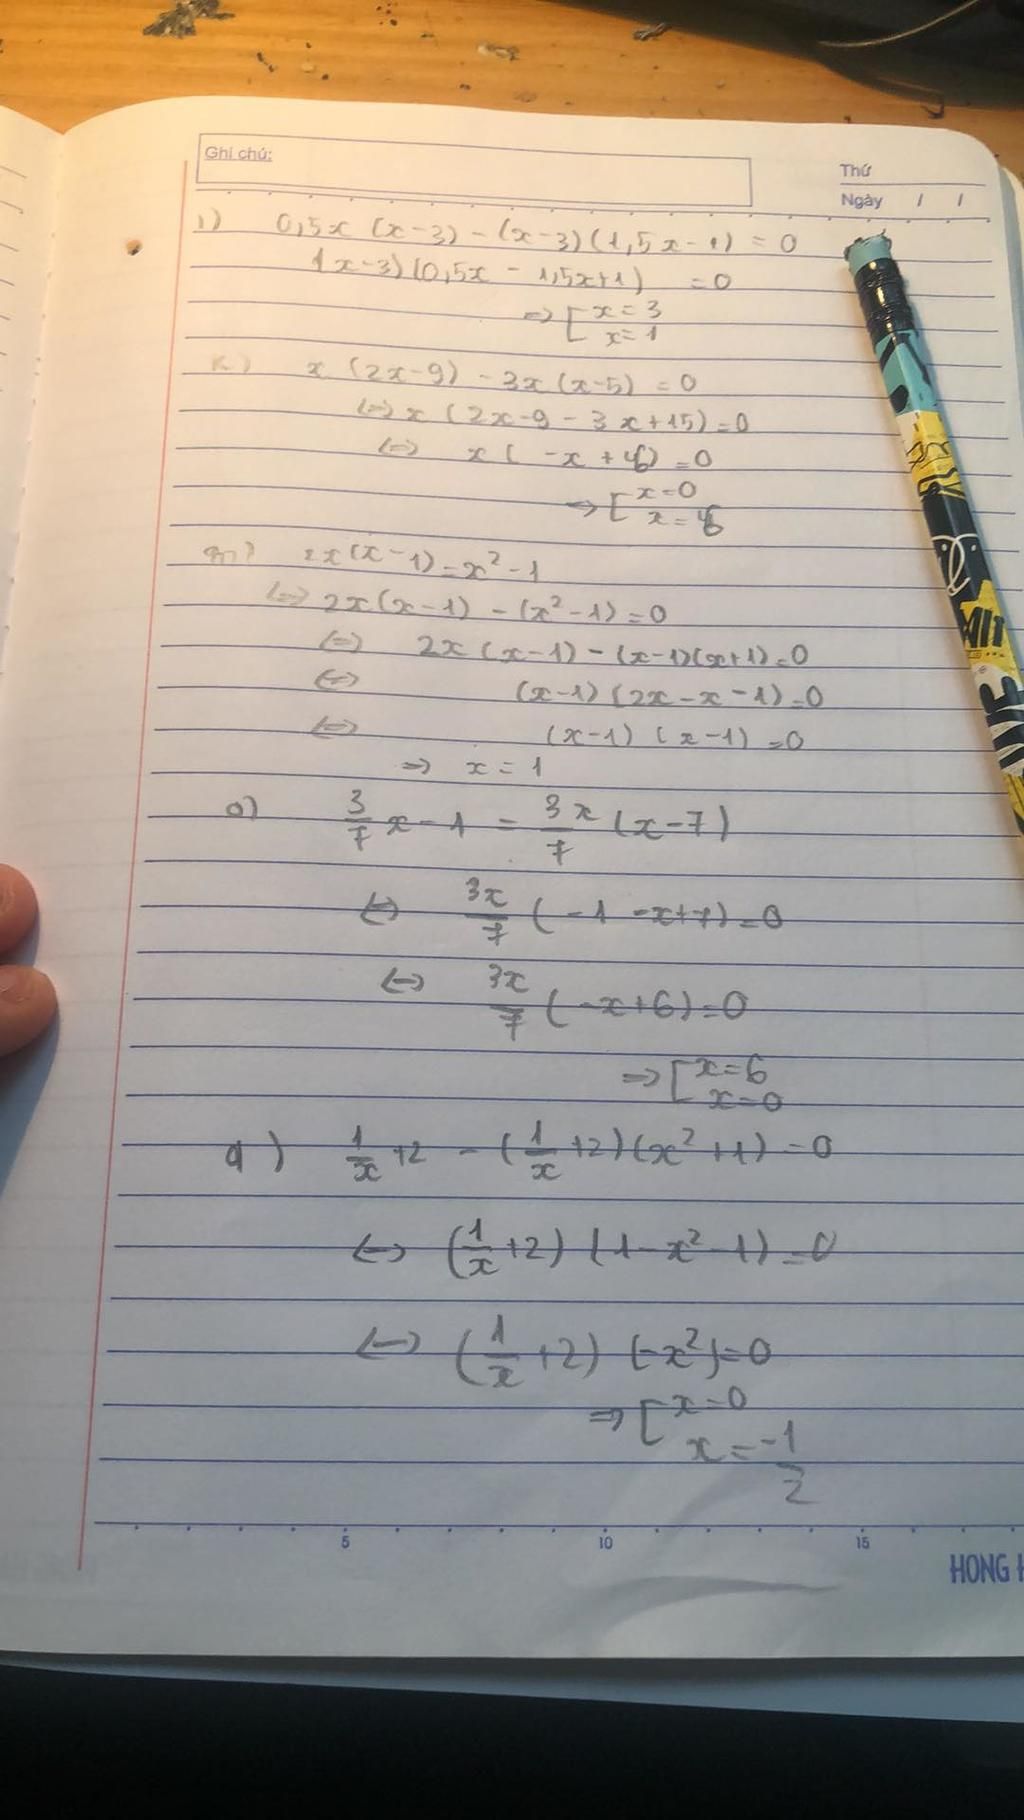 Ghi chú:
Thứ
Ngày / /
i) 0,5x (x-3) - (x-3)(1,5x-1) = 0
(x-3)(0,5x - 1,5x+1) = 0
=> [ x = 3
x = 1
k) x (2x-9) - 3x(x-5) = 0
<=> x (2x-9 - 3x+15) = 0
<=> x ( -x + 6) = 0
=> [ x=0
x = 6
m) 2x(x-1) = x² - 1
<=> 2x(x-1) - (x²-1) = 0
<=> 2x (x-1) - (x-1)(x+1) = 0
<=> (x-1) (2x-x-1) = 0
<=> (x-1) (x-1) = 0
=> x = 1
o) 3/7 x - 1 = 3x/7 (x-7)
<=> 3x/7 (-1 -x+7) = 0
<=> 3x/7 (-x+6) = 0
=> [ x=6
x=0
q) 1/x +2 - (1/x +2)(x²+1) = 0
<=> (1/x +2) (1-x²-1) = 0
<=> (1/x +2) (-x²) = 0
=> [ x=0
x = -1/2
5 10 15
HONG H